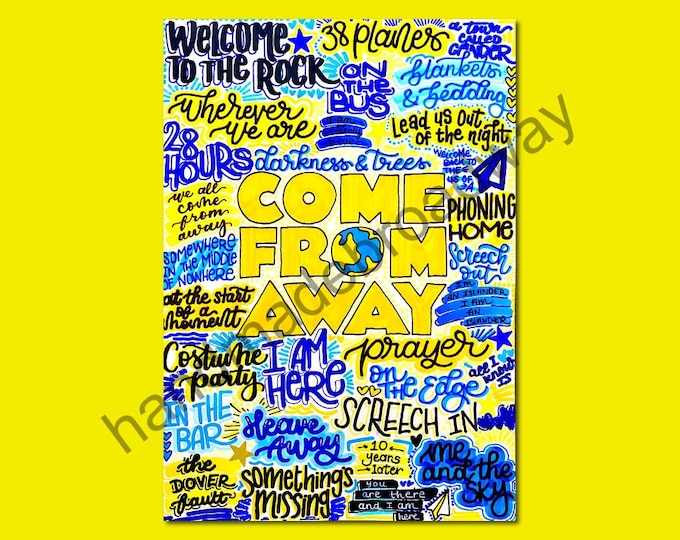 WELCOME
TO THE ROCK
38 planes
a town
CALLED
GANDER
ON
THE
BUS
blankets
& bedding
wherever
we are
Lead us out
of the night
28
HOURS
darkness & trees
WELCOME
BACK TO
THE
US OF
we all
come
from
away
COME
FROM
AWAY
PHONING
HOME
SOMEWHERE
IN THE MIDDLE
OF NOWHERE
Screech
out
I'M
AN ISLANDER
I AM
AN
ISLANDER
at the start
of a
moment
Costume
party
I AM
HERE
prayer
ON the Edge
all I
know
IS
IN THE
BAR
Heave
Away
SCREECH IN
the
DOVER
fault
something's
MISSING
10
Years
later
you
are there
and I am
here
me
and the
SKY
handmadebroadway